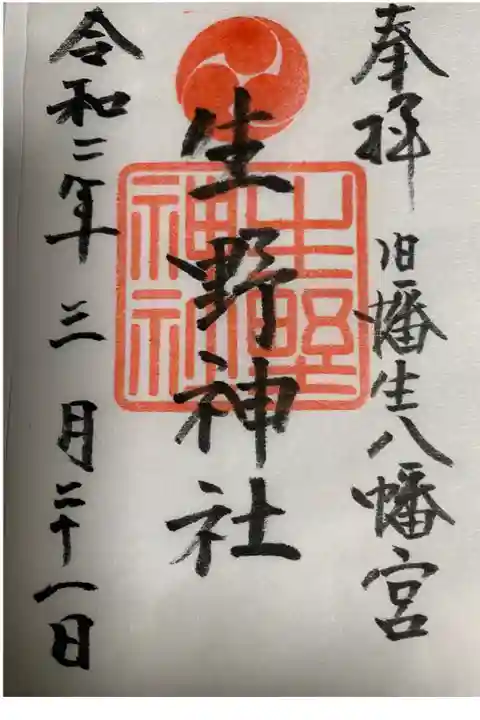 奉拝 旧幡生八幡宮
生野神社
生野
神社
令和二年三月二十一日